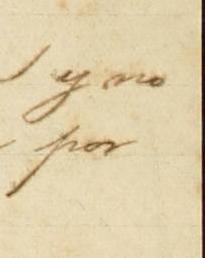 y no
por